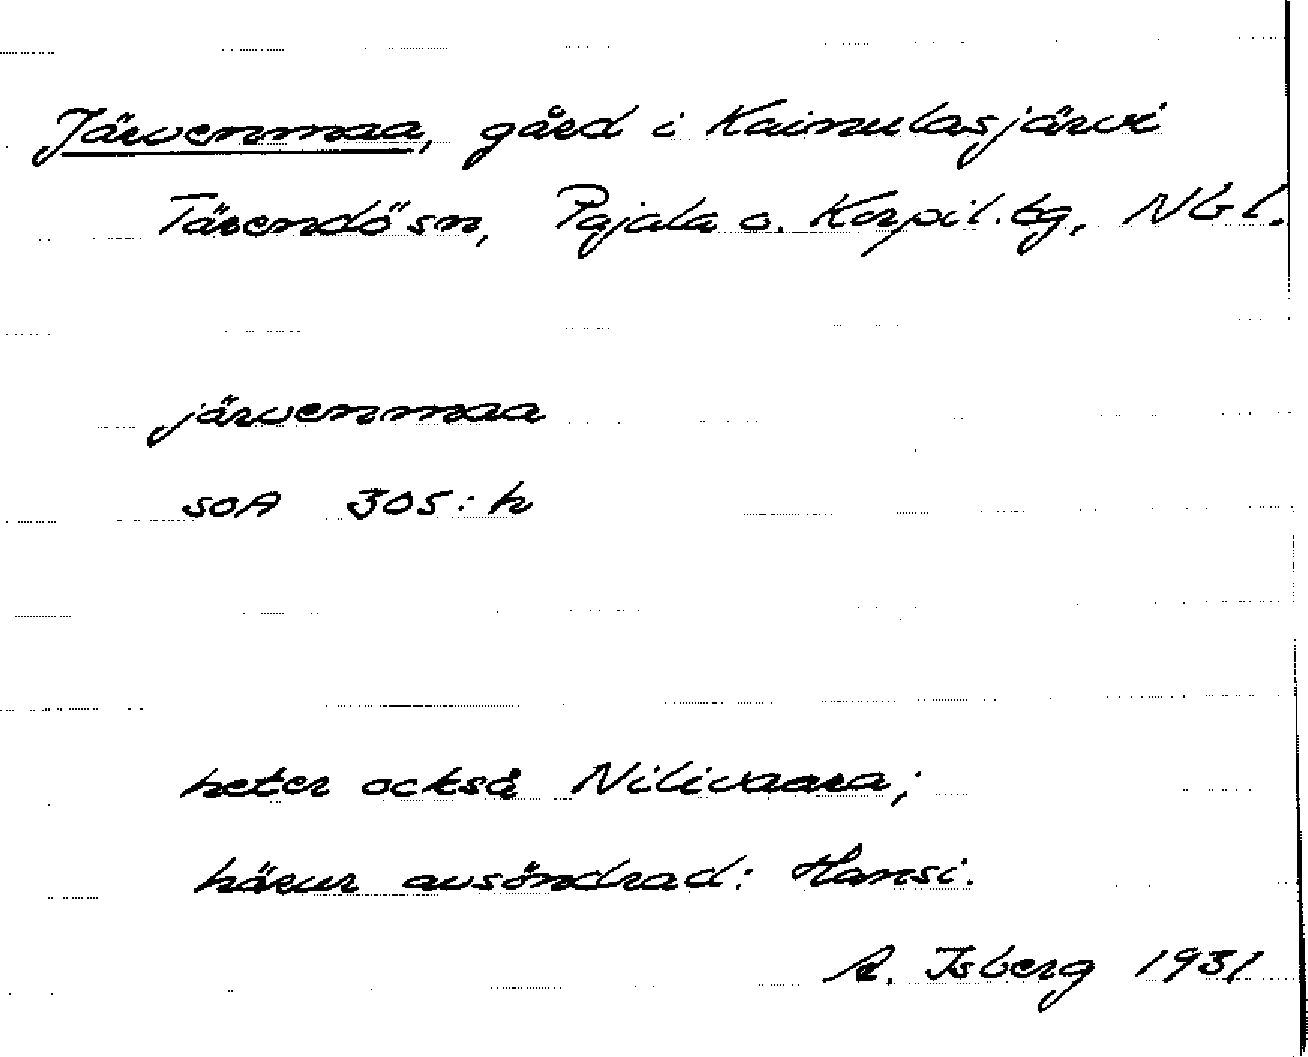 Järvenmaa, gård i Kainulasjärvi
Tärendö sn, Pajala o. Korpil. tg, Nbl.
järvenmaa
SOA 305:h
heter också Nilivaara;
härur avsöndrad: Hansi.
A. Isberg 1931